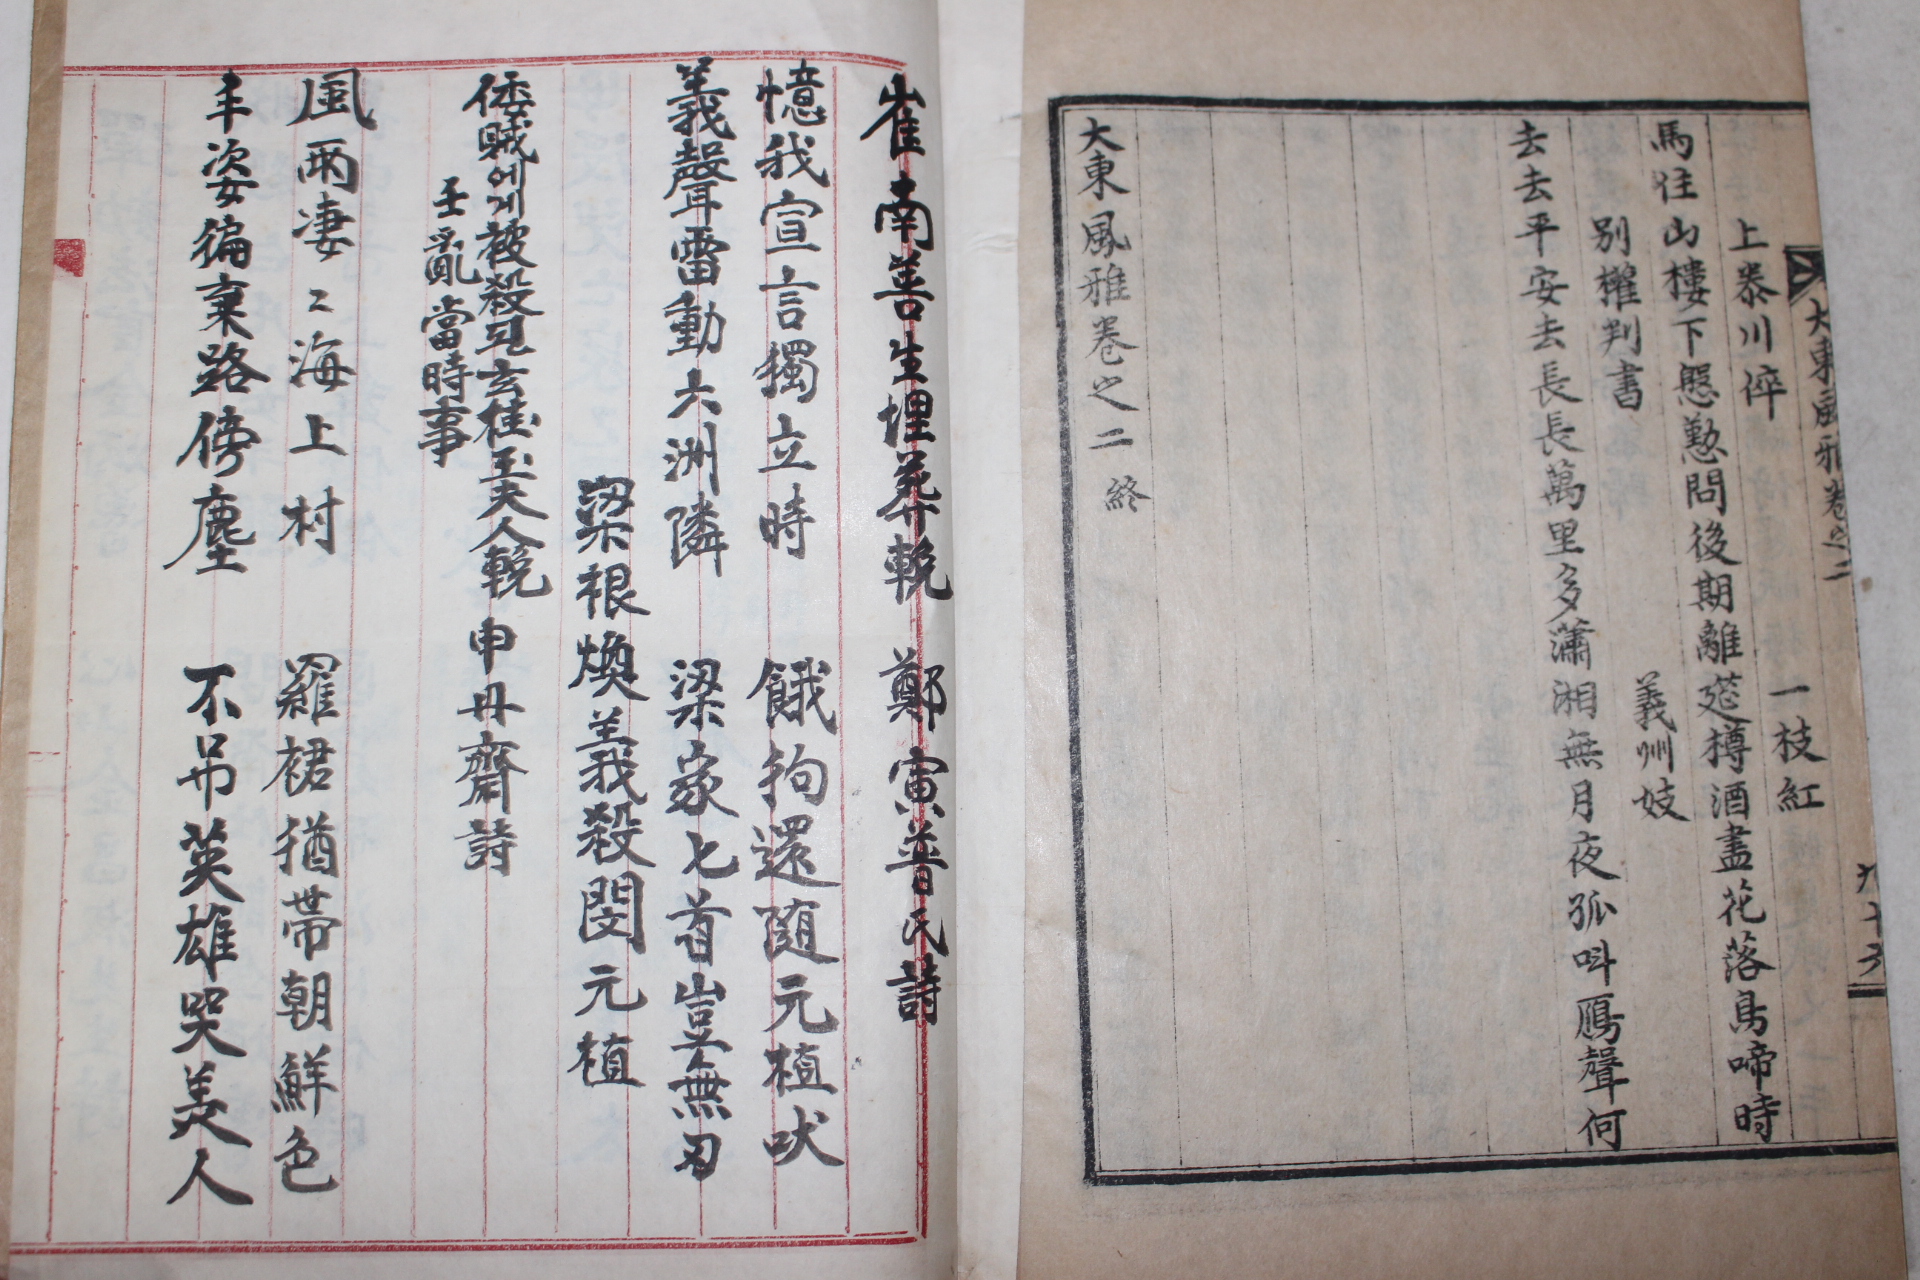 大東風雅卷之二
九十六
上泰川倅
一枝紅
馬住山樓下慇懃問後期離筵樽酒盡花落鳥啼時
別權判書
義州妓
去去平安去長長萬里多瀟湘無月夜孤呌鴈聲何
大東風雅卷之二 終
崔南善生埋葬輓 鄭寅普氏詩
憶我宣言獨立時 餓狗還隨元植吠
義聲雷動六洲隣 梁家匕首豈無刃
梁槿煥義殺閔元植
倭賊에게被殺된玄桂玉夫人輓 申丹齋詩
壬亂當時事
風雨凄〻海上村 羅裙猶帶朝鮮色
丰姿徧棄路傍塵 不吊英雄哭美人